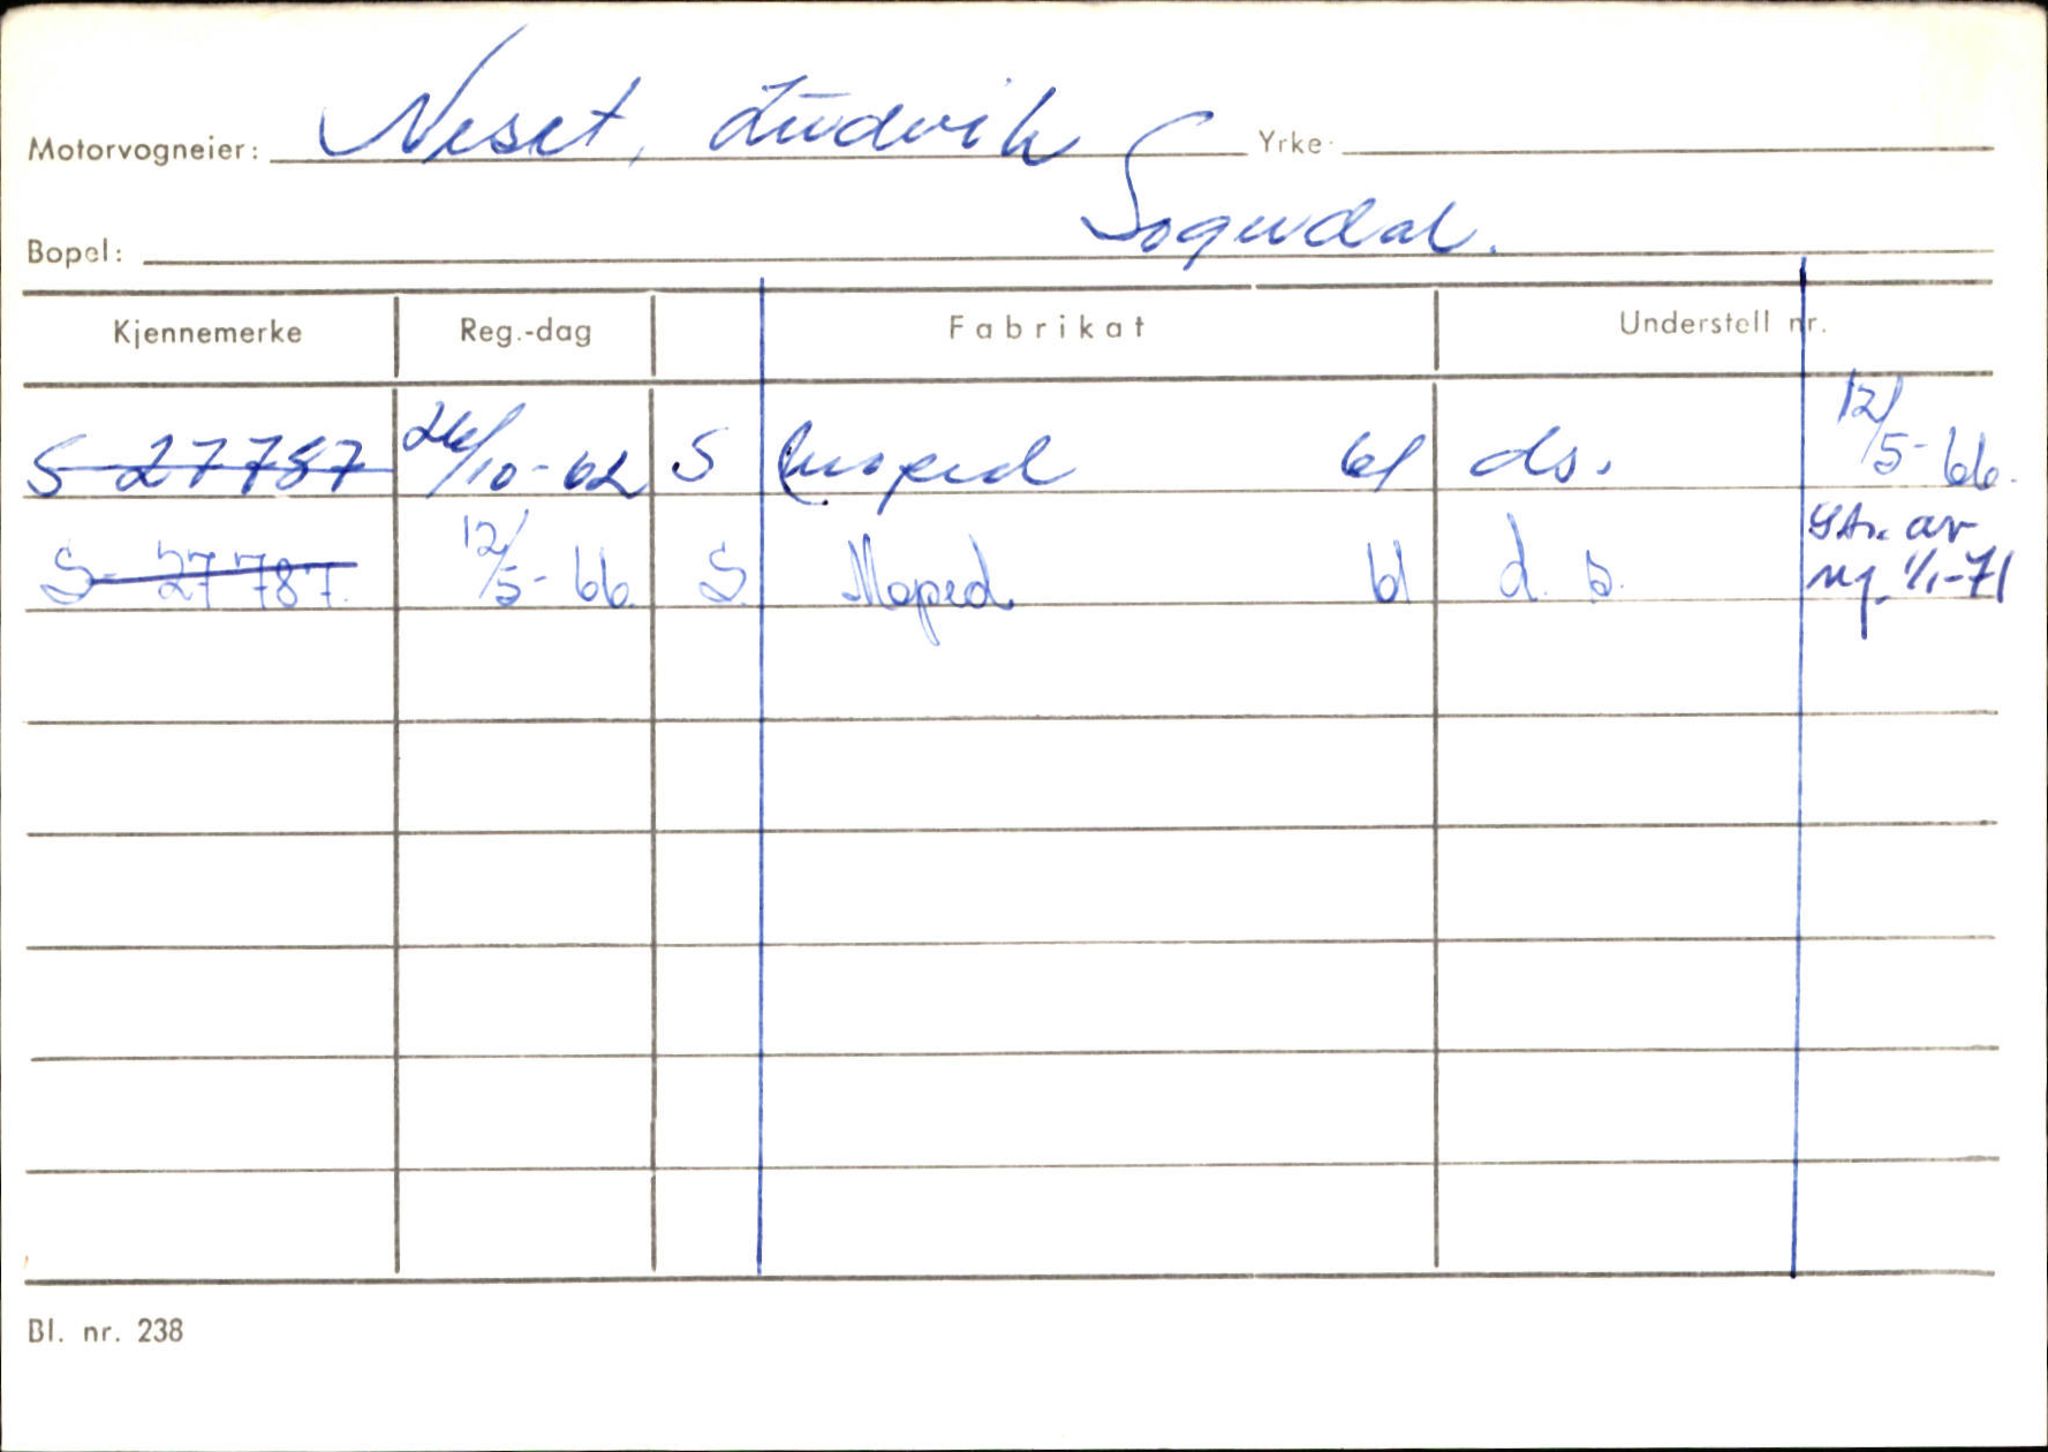 Motorvogneier: Neset, Ludvik Yrke:
Bopel: Sogndal.
Kjennemerke Reg.-dag Fabrikat Understell nr.
S-27787 26/10-62 S Moped 61 ds. 12/5-66.
S-27787. 12/5-66. S. Moped. 61 d.s. Str. av
rg. 1/1-71
Bl. nr. 238